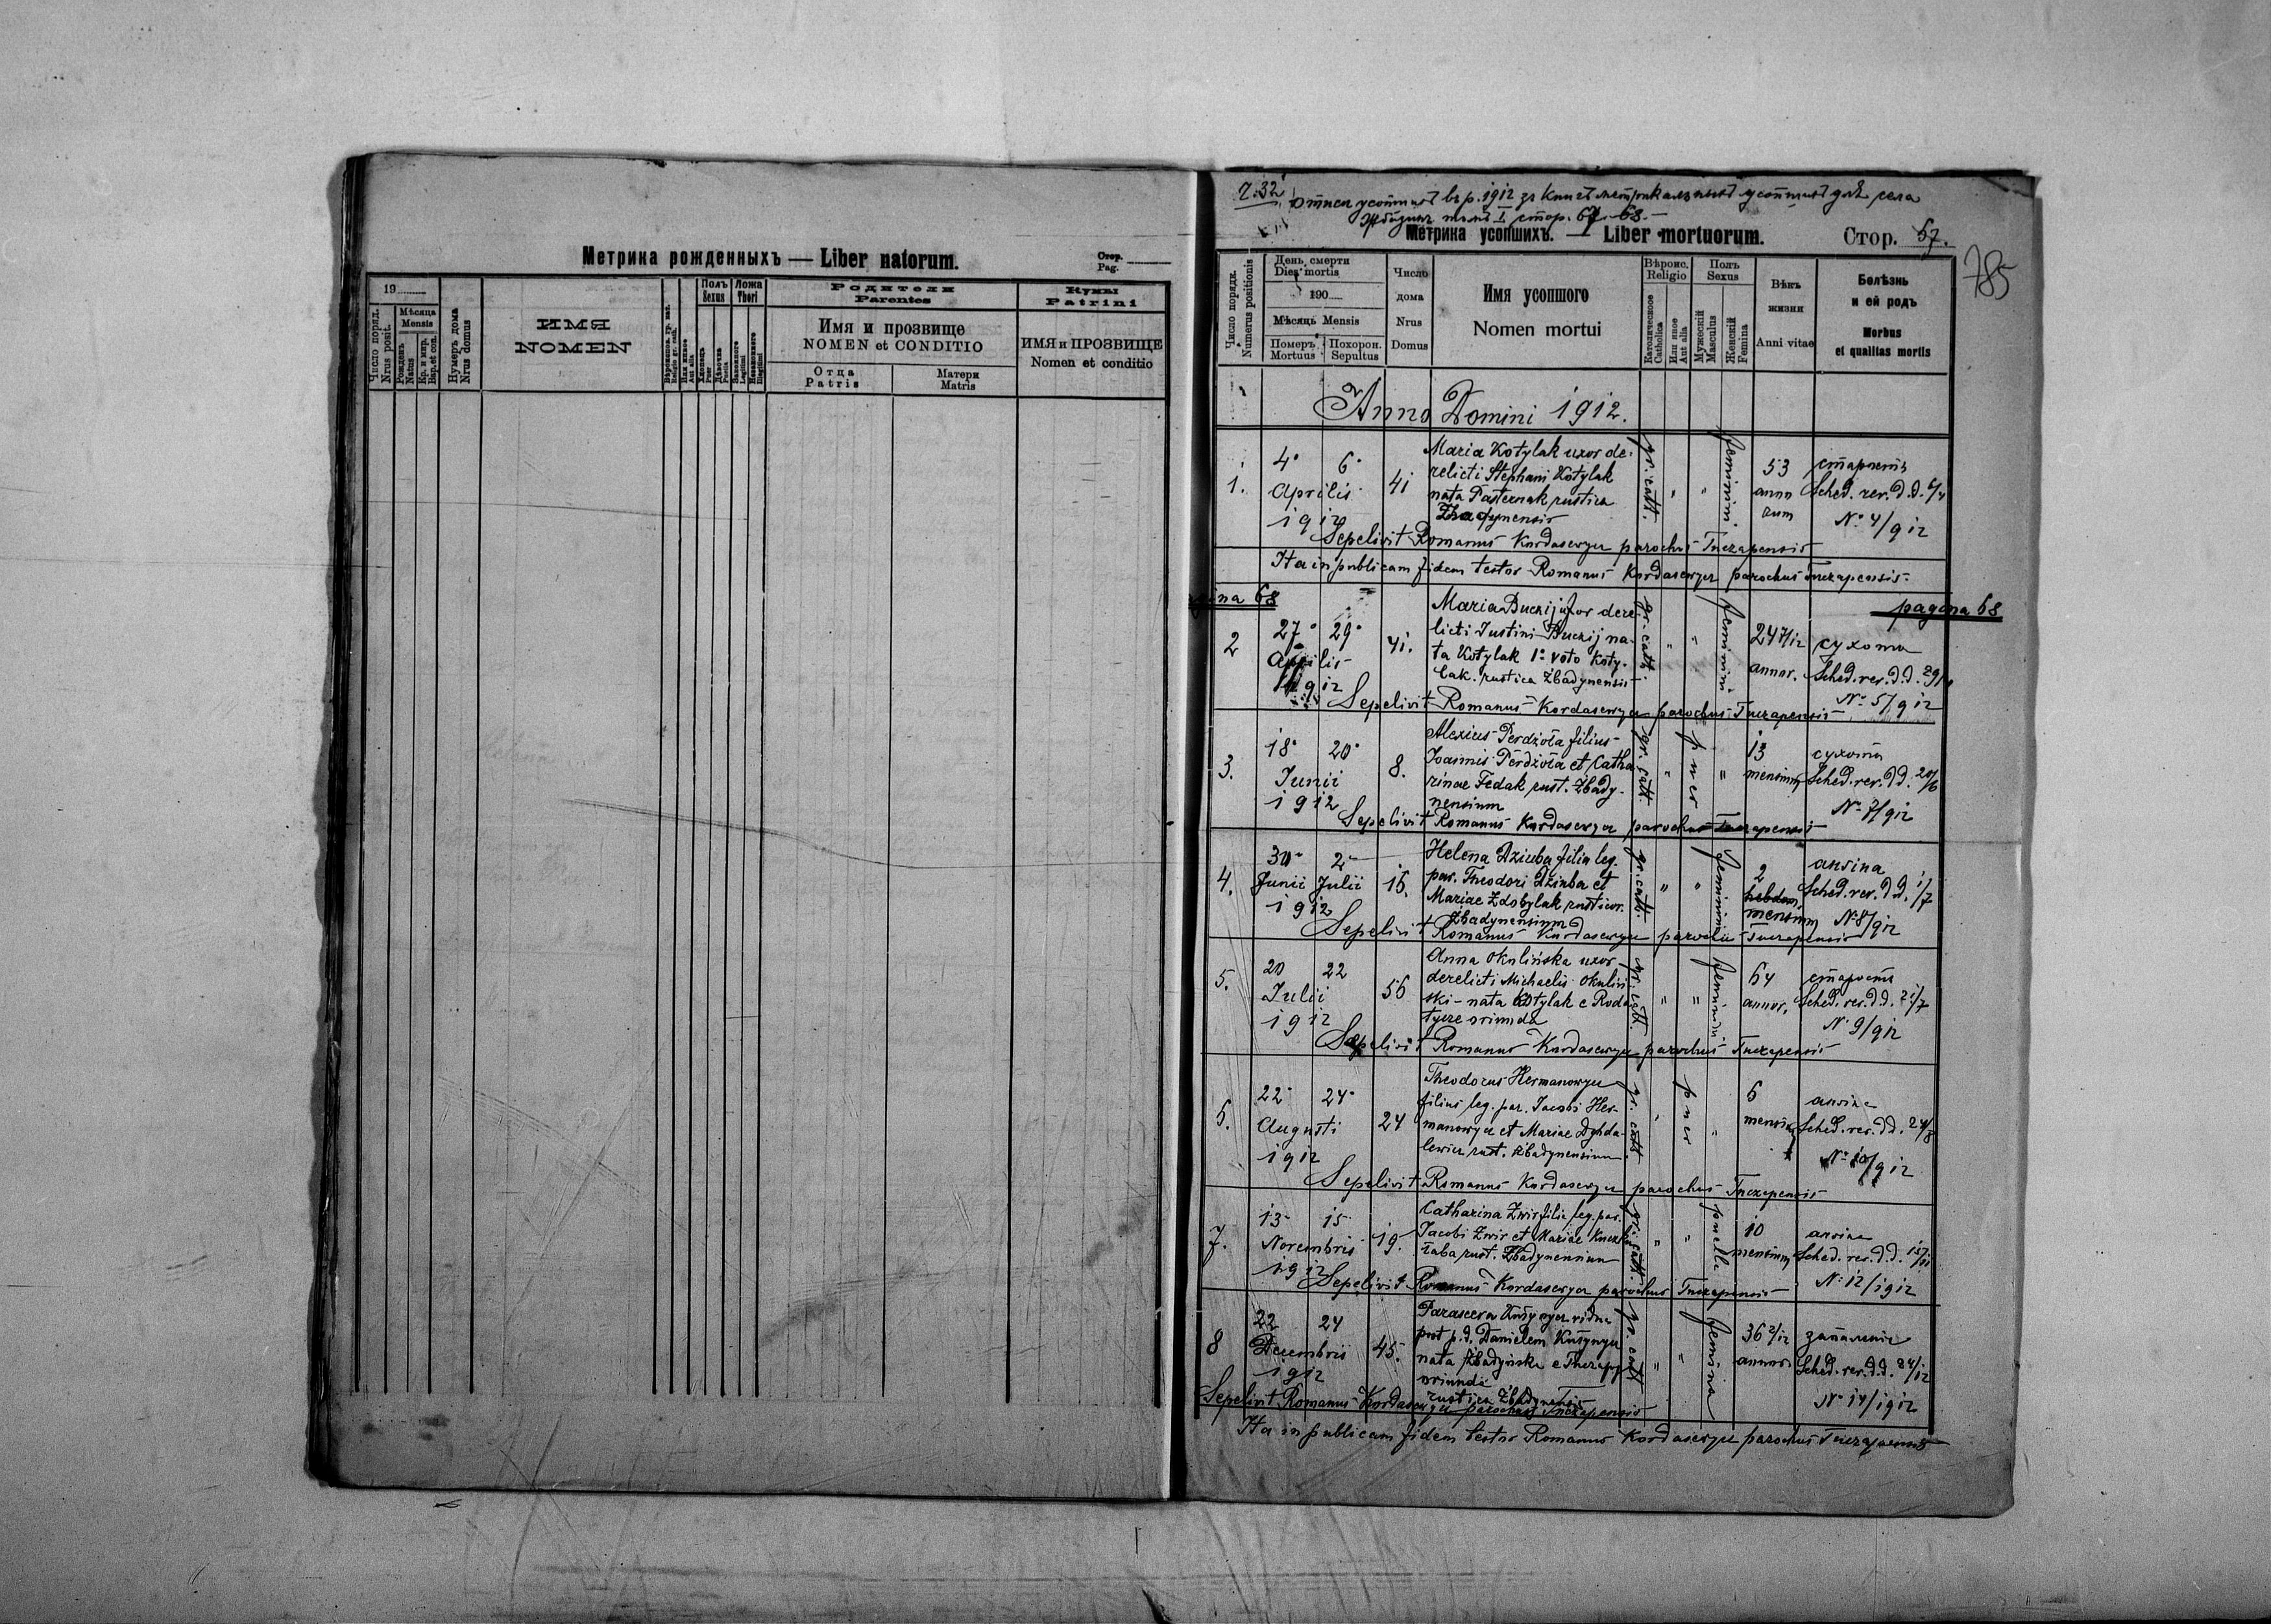 Метрика рожденныхъ — Liber natorum.
Стор.
Pag.
19
Число поряд.
Nrus posit.
Мѣсяца
Mensis
Рожденъ
Natus
Кр. и мир.
Bap. et con.
Нумеръ дома
Nrus domus
ИМЯ
NOMEN
Или инаке
Aut alia
Полъ
Sexus
Хлопецъ
Puer
Дѣвочка
Puella
Ложа
Thori
Законного
Legitimi
Незаконного
Illegitimi
Родители
Parentes
Имя и прозвище
NOMEN et CONDITIO
Отца
Patris
Матери
Matris
Кумы
Patrini
ИМЯ и ПРОЗВИЩЕ
Nomen et conditio
Ч. 32
усопшихъ въ р. 1912 зъ усопшихъ для села
томъ I. стор. 67-68.-
Метрика усопшихъ. — Liber mortuorum.
Стор. 67.
785
Число порядк.
Numerus positionis
День смерти
Dies mortis
190
Мѣсяць Mensis
Померъ
Mortuus
Похорон.
Sepultus
Число
дома
Nrus
Domus
Имя усопшого
Nomen mortui
Вѣроис.
Religio
Католическое
Catholica
Или иное
Aut alia
Полъ
Sexus
Мужескій
Masculus
Женскій
Femina
Вѣкъ
жизни
Anni vitae
Болѣзнь
и ей родъ
Morbus
et qualitas mortis
Anno Domini 1912.
1. 4. 6. Aprilis 1912 41
Maria Kotylak uxor de-
relicti Stephani Kotylak
nata Pasternak rustica
gr. cath. " " feminini
53 anno rum
старость
Sched. rev. d. d. 6/4
No 4/912
Sepelivit Romanus Kordasewycz parochus Tuczapensis
Ita in publicam fidem testor Romanus Kordasewycz parochus Tuczapensis.
pagina 68
2 27. 29. Aprilis 1912 41.
Maria Buczij uxor dere-
licti Justini Buczij na-
ta Kotylak 1o voto Koty-
lak. rustica Zbadynensis
gr. cath. " " feminini
24 7/12 annor.
сухота
Sched. rev. d. d. 29/4
No 5/912
Sepelivit Romanus Kordasewycz parochus Tuczapensis
3. 18. 20. Junii 1912 8.
Alexius Perdzoła filius
Joannis Perdzoła et Catha-
rinae Fedak rust. Zbady-
nensium
gr. cath. " puer "
13 mensium
сухота
Sched. rev. d. d. 20/6
No 7/912
Sepelivit Romanus Kordasewycz parochus Tuczapensis
4. 30 Junii 2 Julii 1912 15.
Helena Dziuba filia leg.
par. Theodori Dziuba et
Mariae Zdobylak rusticor.
Zbadynensium
gr. cath. " " feminini
2 hebdom. mensium
ansina
Sched. rev. d. d. 1/7
No 8/912
Sepelivit Romanus Kordasewycz parochus Tuczapensis
5. 20 22 Julii 1912 56
Anna Okulińska uxor
derelicti Michaelis Okuliń-
ski - nata Kotylak e Roda-
tycze oriunda
gr. cath. " " feminini
64 annor.
старость
Sched. rev. d. d. 21/7
No 9/912
Sepelivit Romanus Kordasewycz parochus Tuczapensis
6. 22. 24. Augusti 1912 24
Theodorus Hermanowycz
filius leg. par. Jacobi Her-
manowycz et Mariae Dyhda-
lewicz rust. Zbadynensium
gr. cath. " puer "
6 mensium
ansina
Sched. rev. d. d. 24/8
No 10/912
Sepelivit Romanus Kordasewycz parochus Tuczapensis
7. 13 15 Novembris 1912 19.
Catharina Zwir filia leg. par.
Jacobi Zwir et Mariae
rust. Zbadynensium
gr. cath. " " puella
10 mensium
ansina
Sched. rev. d. d. 15/11
No 12/1912
Sepelivit Romanus Kordasewycz parochus Tuczapensis
8 22 24 Decembris 1912 45.
vidua
post p. d. Danielem
nata Zbadyńska e Tuczapy
oriunda
rustica Zbadynensis
gr. cath. " " femina
36 2/12 annor.
запаленіе
Sched. rev. d. d. 24/12
No 14/1912
Sepelivit Romanus Kordasewycz parochus Tuczapensis
Ita in publicam fidem testor Romanus Kordasewycz parochus Tuczapensis